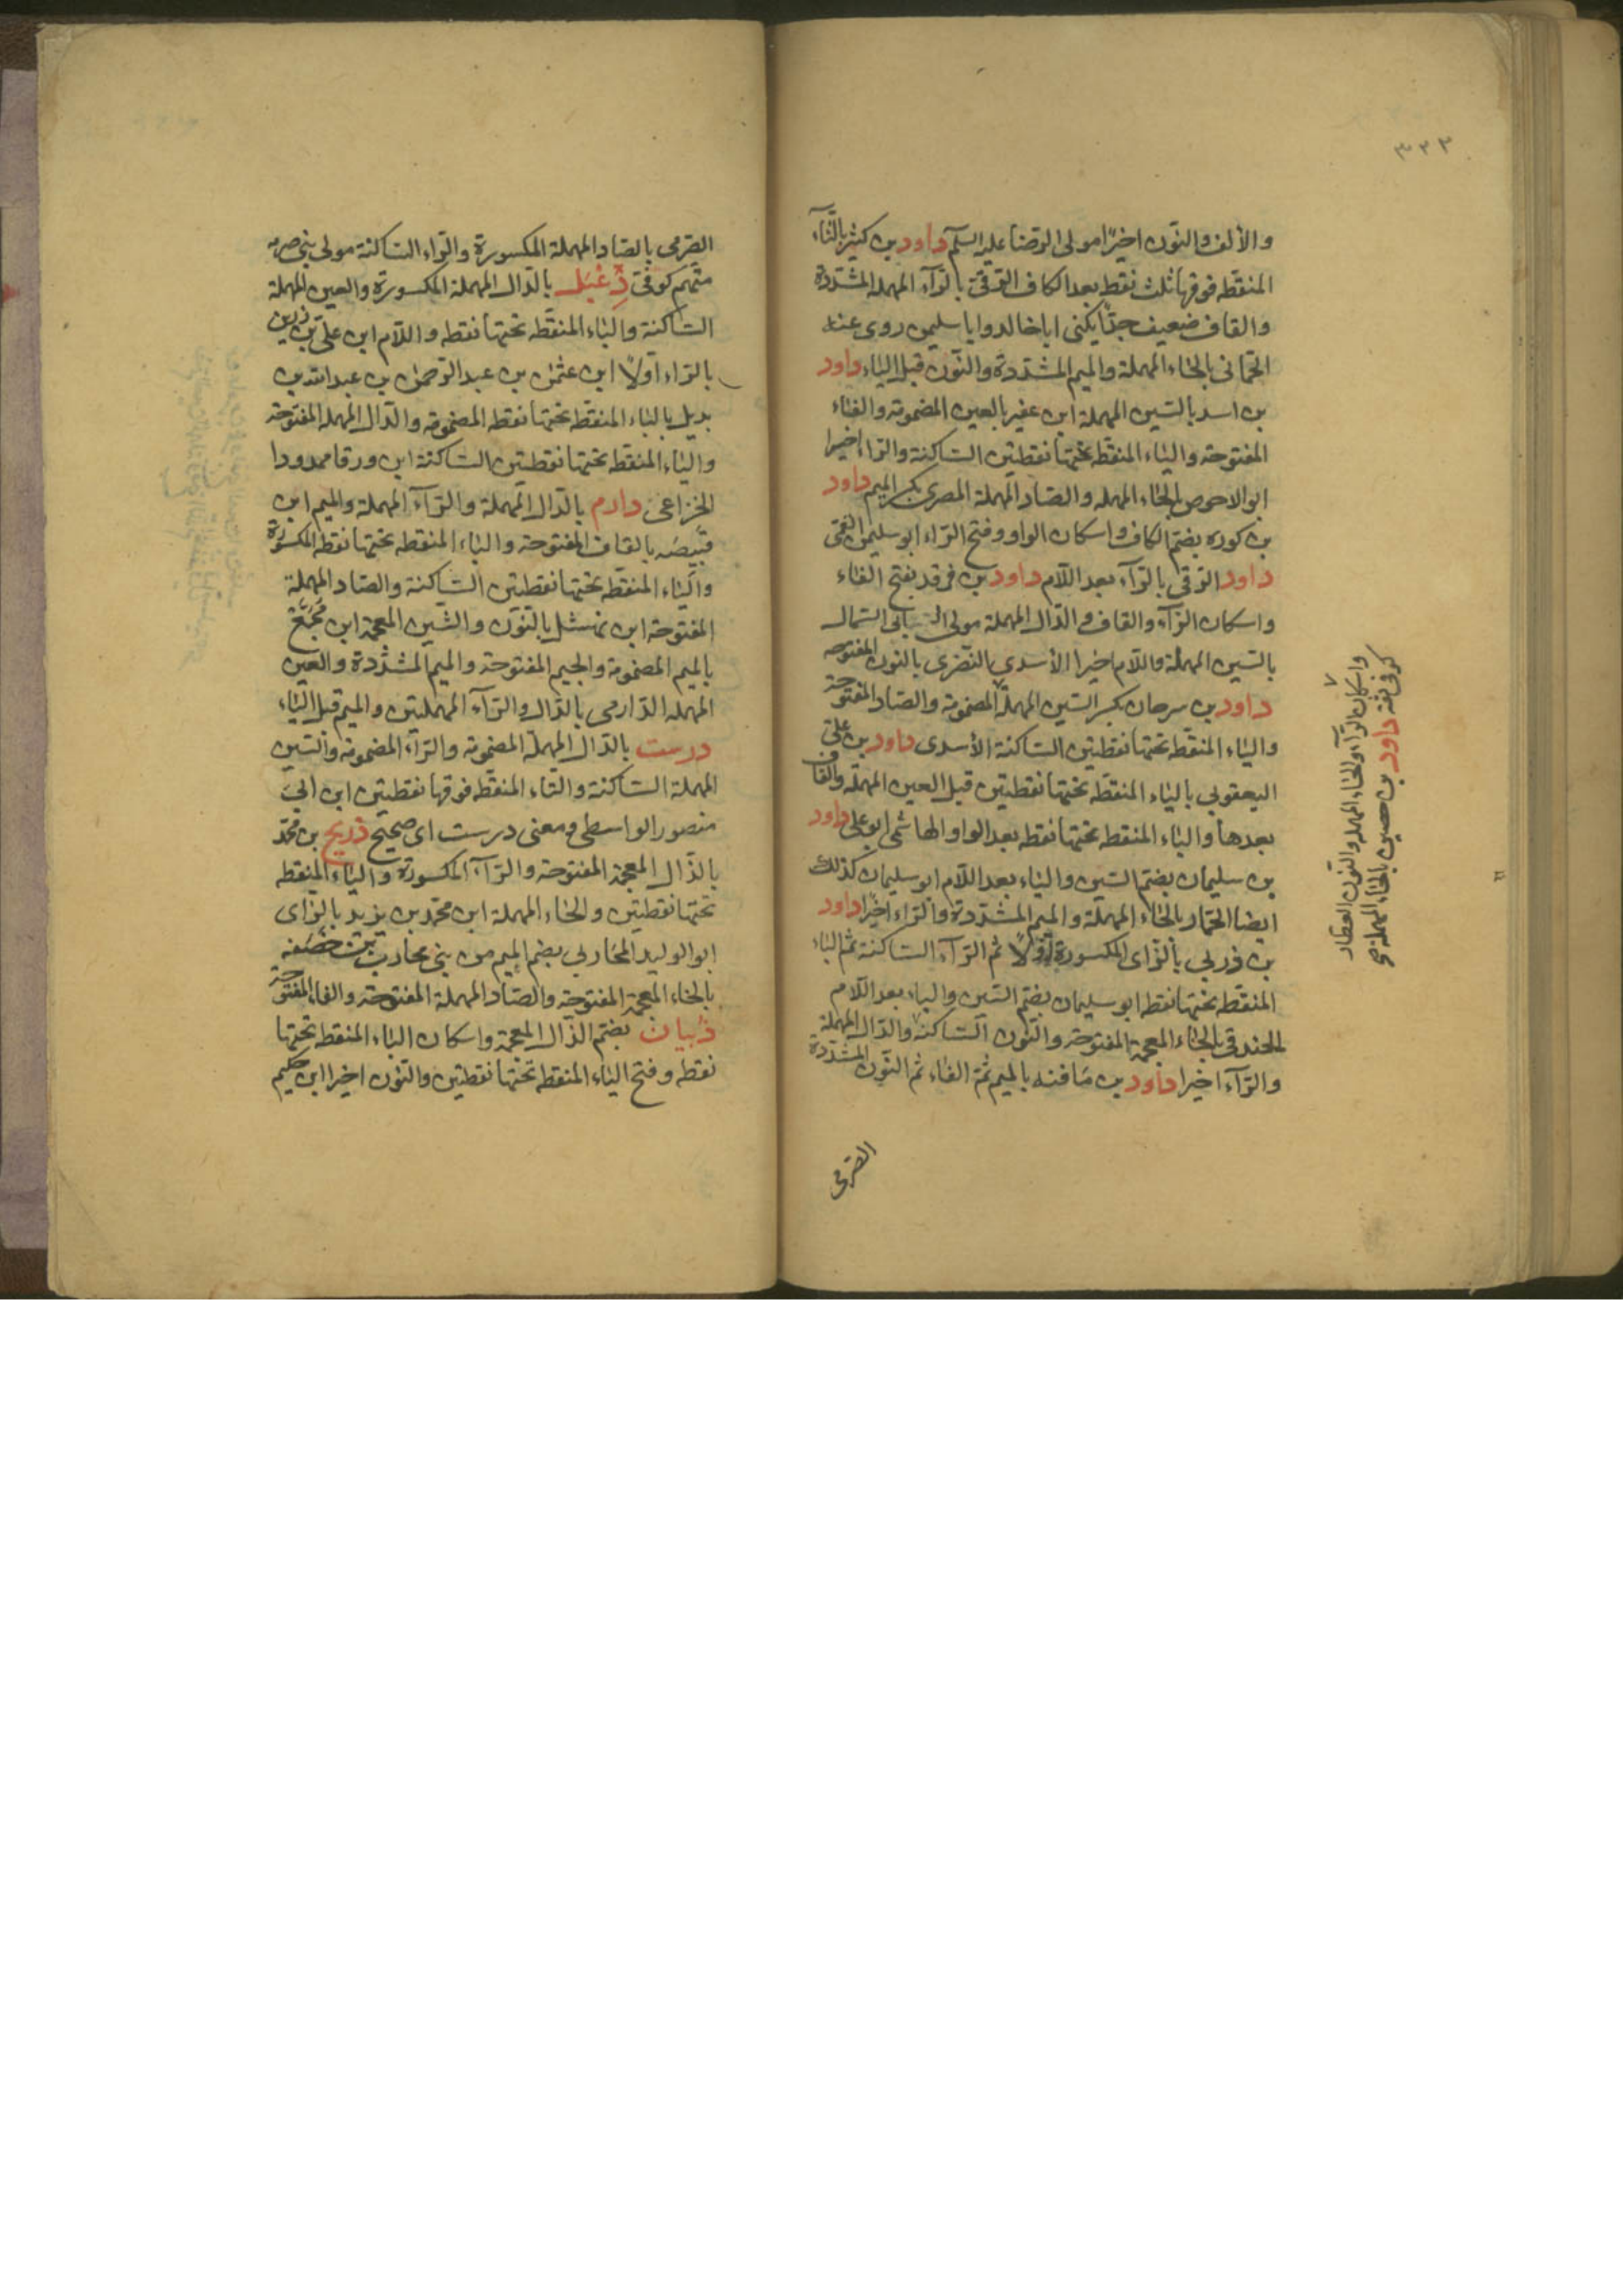 ٣٣٣
والألف والنون اخيرًا مولى الرضا عليه السلم داود بن كثير بالثاء
المنقطه فوقها ثلث نقط بعد الكاف الرقى بالرآء المهمله المشددة
والقاف ضعيف جدًا يكنى ابا خالد وابا سليمن روى عنه
الحمانى بالحاء المهملة والميم المشددة والنون قبل الياء داود
بن اسد بالسين المهملة ابن عفير بالعين المضمومة والفاء
المفتوحة والياء المنقطه تحتها نقطتين الساكنة والراء اخيرا
ابو الاحوص بالحاء المهمله والصاد المهملة المصرى بكسر الميم داود
بن كوره بضم الكاف واسكان الواو وفتح الراء ابو سليمن القمى
داود الرقى بالرآء بعد اللام داود بن فرقد بفتح الفاء
واسكان الرآء والقاف والدال المهملة مولى ابى السمال
بالسين المهملة واللام اخيرا الأسدى النصرى بالنون المفتوحه
داود بن سرحان بكسر السين المهملة المضمومة والصاد المفتوحة
والياء المنقطه تحتها نقطتين الساكنة الأسدى داود بن على
اليعقوبى بالياء المنقطه تحتها نقطتين قبل العين المهملة والقاف
بعدها والباء المنقطه تحتها نقطه بعد الواو الهاشمى ابو على داود
بن سليمان بضم السين والياء بعد اللام ابو سليمان كذلك
ايضا الحمار بالحاء المهملة والميم المشددة والراء اخيرًا داود
بن زربى بالزاى المكسورة اولًا ثم الرآء الساكنة ثم الباء
المنقطه تحتها نقطه ابو سليمان بضم السين والياء بعد اللام
الخندقى بالخاء المعجمة المفتوحة والنون الساكنة والدال المهملة
والرآء اخيرا داود بن مافنه بالميم ثمّ الفاء ثم النون المشددة
الصرمى
واسكان الرآء والحاء المهمله والنون العطار
كوفى ثقة داود بن حصين بالحاء المهملة صح
الصرمى بالصاد المهملة المكسورة والراء الساكنة مولى بنى صرمه
منهم كوفى دِعْبَل بالدال المهملة المكسورة والعين المهملة
الساكنة والباء المنقطه تحتها نقطه واللام ابن على بن رزين
بالراء اولًا ابن عثمن بن عبد الرحمن بن عبد الله بن
بديل بالباء المنقطه تحتها نقطه المضمومة والدال المهملة المفتوحة
والياء المنقطه تحتها نقطتين الساكنة ابن ورقا ممدودا
الخزاعى دارم بالدال المهملة والرآء المهملة والميم ابن
قبيصه بالقاف المفتوحة والباء المنقطه تحتها نقطه المكسورة
والياء المنقطه تحتها نقطتين الساكنة والصاد المهملة
المفتوحة ابن نهشل بالنون والشين المعجمة ابن مجمع
بالميم المضمومة والجيم المفتوحة والميم المشددة والعين
المهمله الدارمى بالدال والرآء المهملتين والميم قبل الياء
درست بالدال المهملة المضمومة والرآء المضمومة والسين
المهملة الساكنة والتاء المنقطه فوقها نقطتين ابن ابى
منصور الواسطى ومعنى درست اى صحيح ذريح بن محمد
بالذال المعجمة المفتوحة والرآء المكسورة والياء المنقطه
تحتها نقطتين والحاء المهملة ابن محمد بن يزيد بالزاى
ابو الوليد المحاربى بضم الميم من بنى محارب بن خصفه
بالخاء المعجمة المفتوحة والصاد المهملة المفتوحة والفاء المفتوحة
ذبيان بضم الذال المعجمة واسكان الباء المنقطه تحتها
نقطه وفتح الياء المنقطه تحتها نقطتين والنون اخيرا ابن حكيم